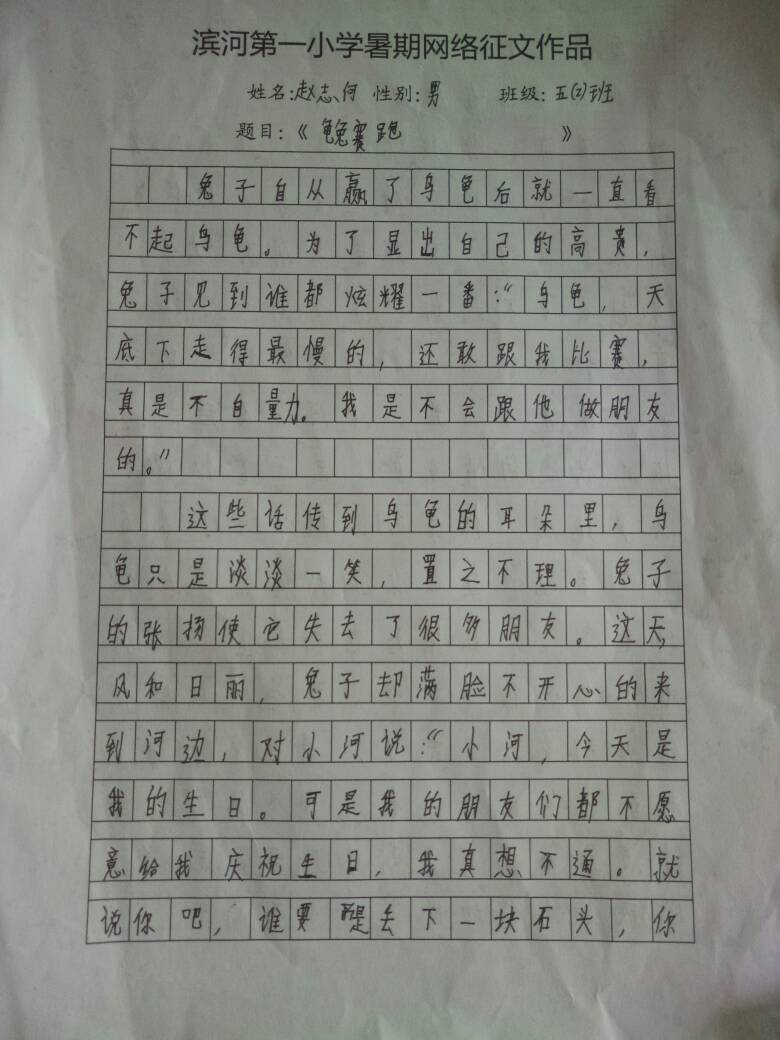 滨河第一小学暑期网络征文作品
姓名:赵志何 性别:男 班级:五(2)班
题目:《龟兔赛跑》
兔子自从赢了乌龟后就一直看
不起乌龟。为了显出自己的高贵,
兔子见到谁都炫耀一番:“乌龟,天
底下走得最慢的,还敢跟我比赛,
真是不自量力。我是不会跟他做朋友
的。”
这些话传到乌龟的耳朵里,乌
龟只是淡淡一笑,置之不理。兔子
的张扬使它失去了很多朋友。这天,
风和日丽,兔子却满脸不开心的来
到河边,对小河说:“小河,今天是
我的生日。可是我的朋友们都不愿
意给我庆祝生日,我真想不通。就
说你吧,谁要是丢下一块石头,你